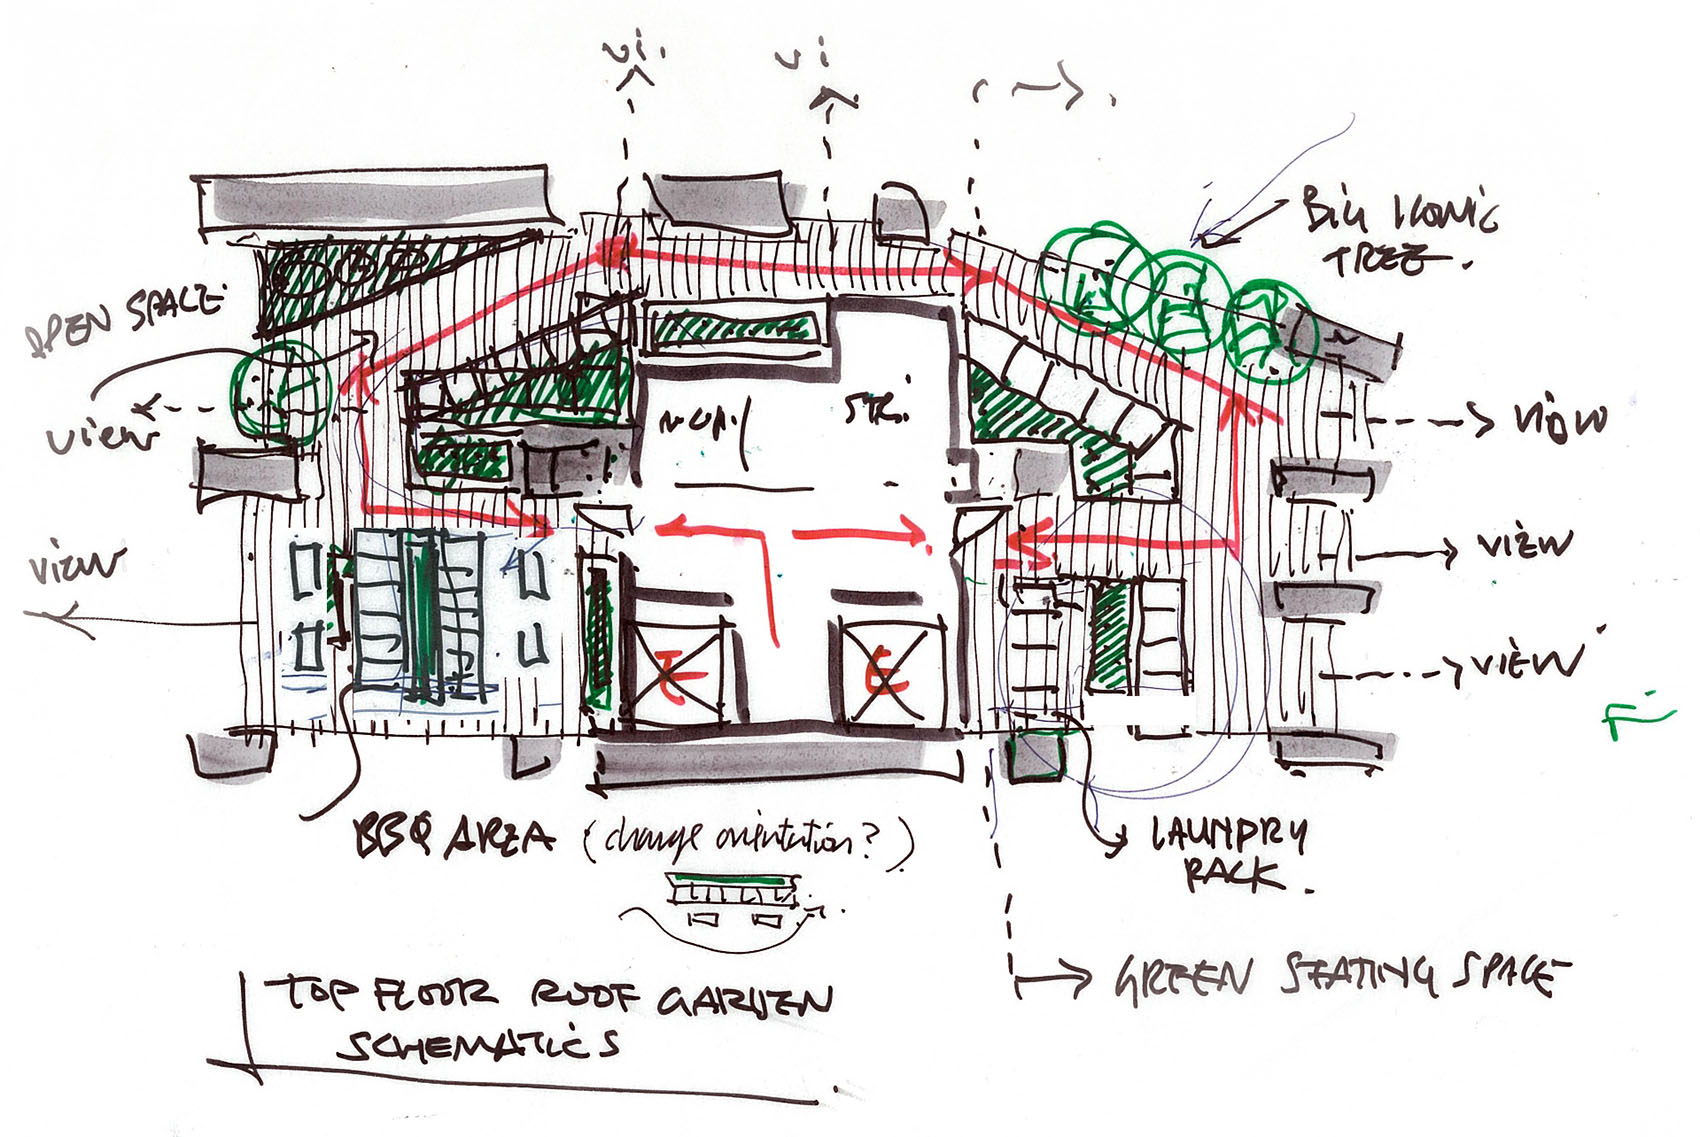 vi.
vi
BIG ICONIC
TREE.
OPEN SPACE
view
view
STR.
VIEW
VIEW
VIEW
E
E
BBQ AREA (change orientation?)
LAUNDRY
RACK.
GREEN SEATING SPACE
TOP FLOOR ROOF GARDEN
SCHEMATICS